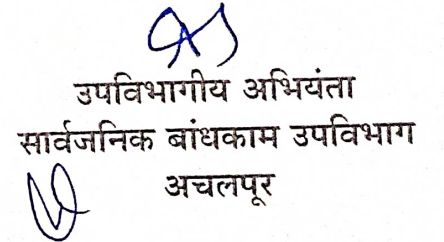 उपविभागीय अभियंता
सार्वजनिक बांधकाम उपविभाग
अचलपूर